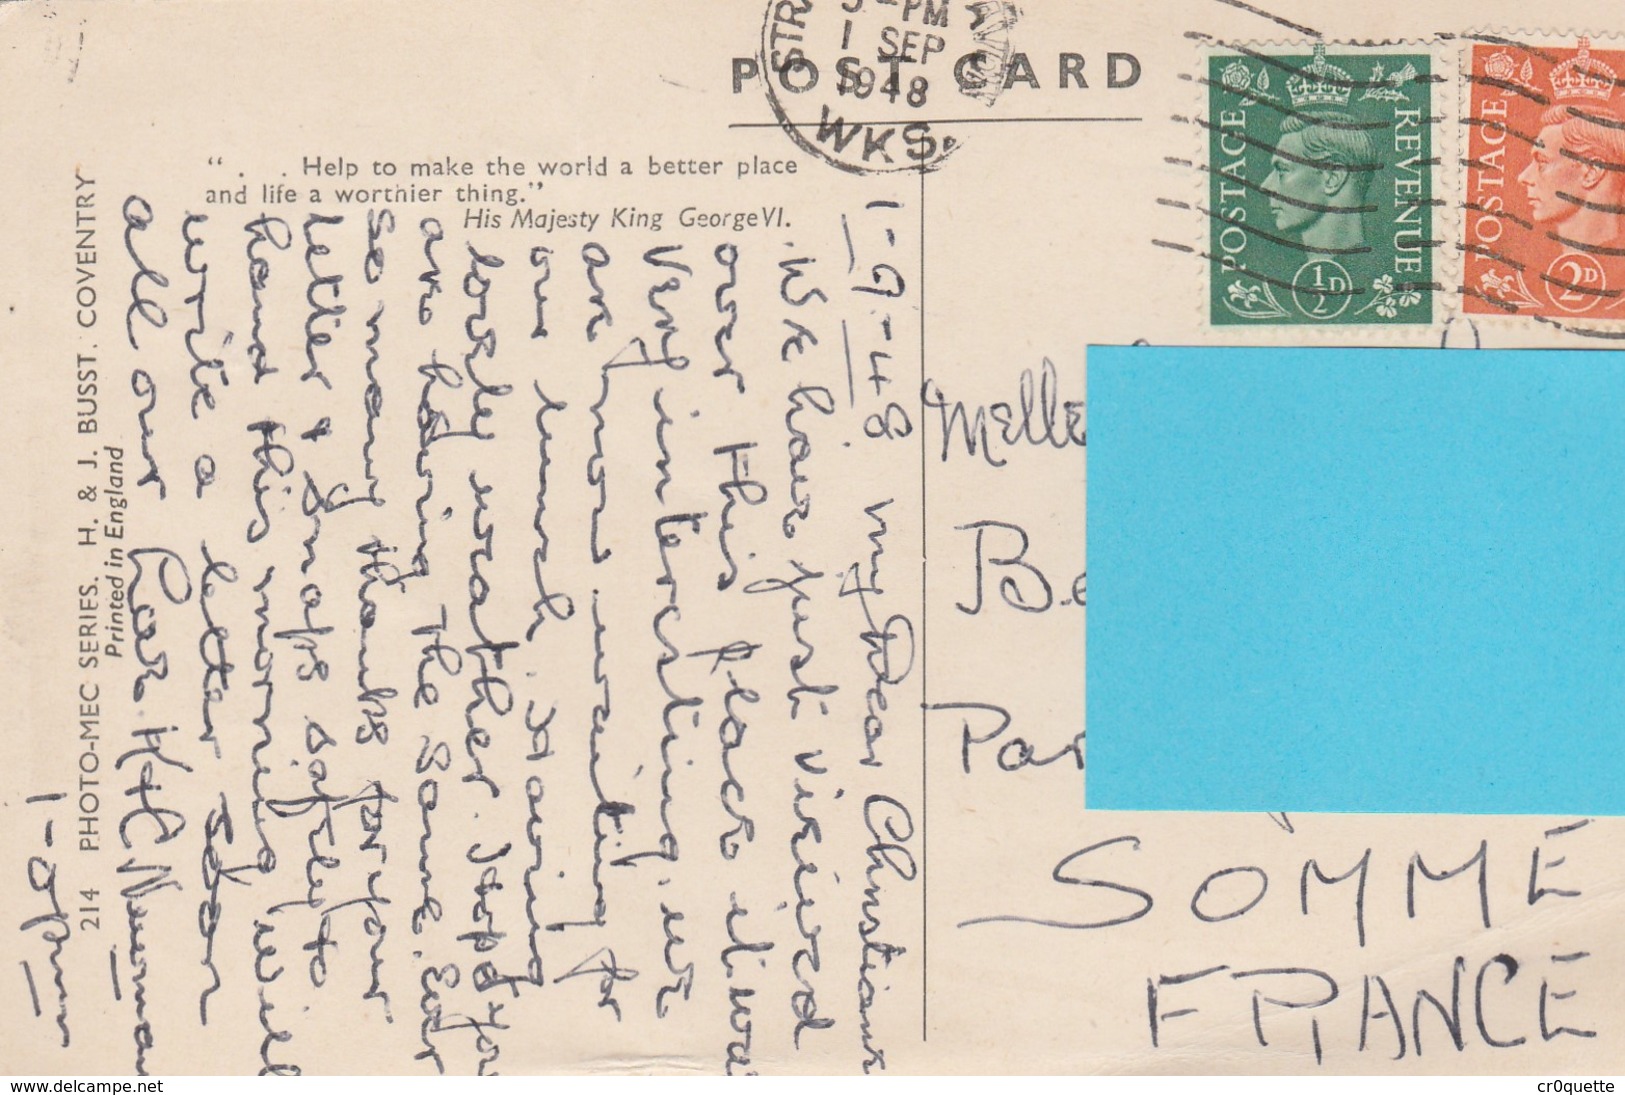 PM
1 SEP
1948
WKS.
POST CARD
POSTAGE REVENUE
½D
POSTAGE
2D
". . . Help to make the world a better place
and life a worthier thing."
His Majesty King George VI.
214 PHOTO-MEC SERIES. H. & J. BUSST. COVENTRY
Printed in England
1-9-48 my Dear Christiane
We have just visited
over this place it was
very interesting. we
are now waiting for
our lunch. Having
lovely weather. Hope you
are having the same. Ever
so many thanks for your
letter & snaps safely to
hand this morning will
write a letter soon
all our love H. H. C Newman
1-0pm
Melle
SOMME
FRANCE
www.delcampe.net
cr0quette